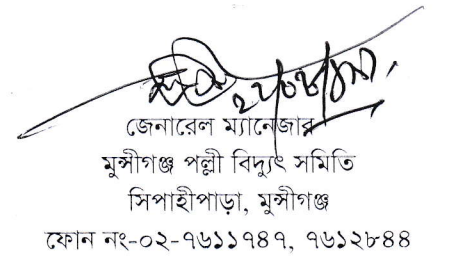 জেনারেল ম্যানেজার
মুন্সীগঞ্জ পল্লী বিদ্যুৎ সমিতি
সিপাহীপাড়া, মুন্সীগঞ্জ
ফোন নং-০২-৭৬১১৭৪৭, ৭৬১২৮৪৪